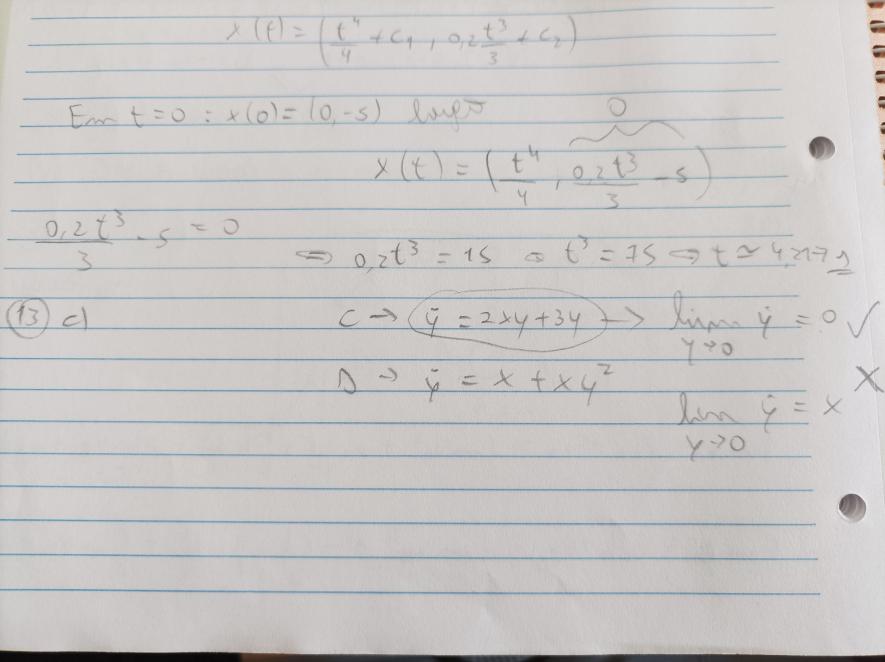 x(t) = (t⁴/4 + c₁, 0,2 t³/3 + c₂)
Em t=0 : x(0) = (0,-5) logo
0
x(t) = (t⁴/4, 0,2t³/3 - 5)
0,2t³/3 - 5 = 0
⇔ 0,2t³ = 15 ⇔ t³ = 75 ⇔ t ≃ 4,217 s
13 c) C → ẏ = 2xy+3y → lim y→0 ẏ = 0 ✓
D → ẏ = x + xy² ×
lim y→0 ẏ = x